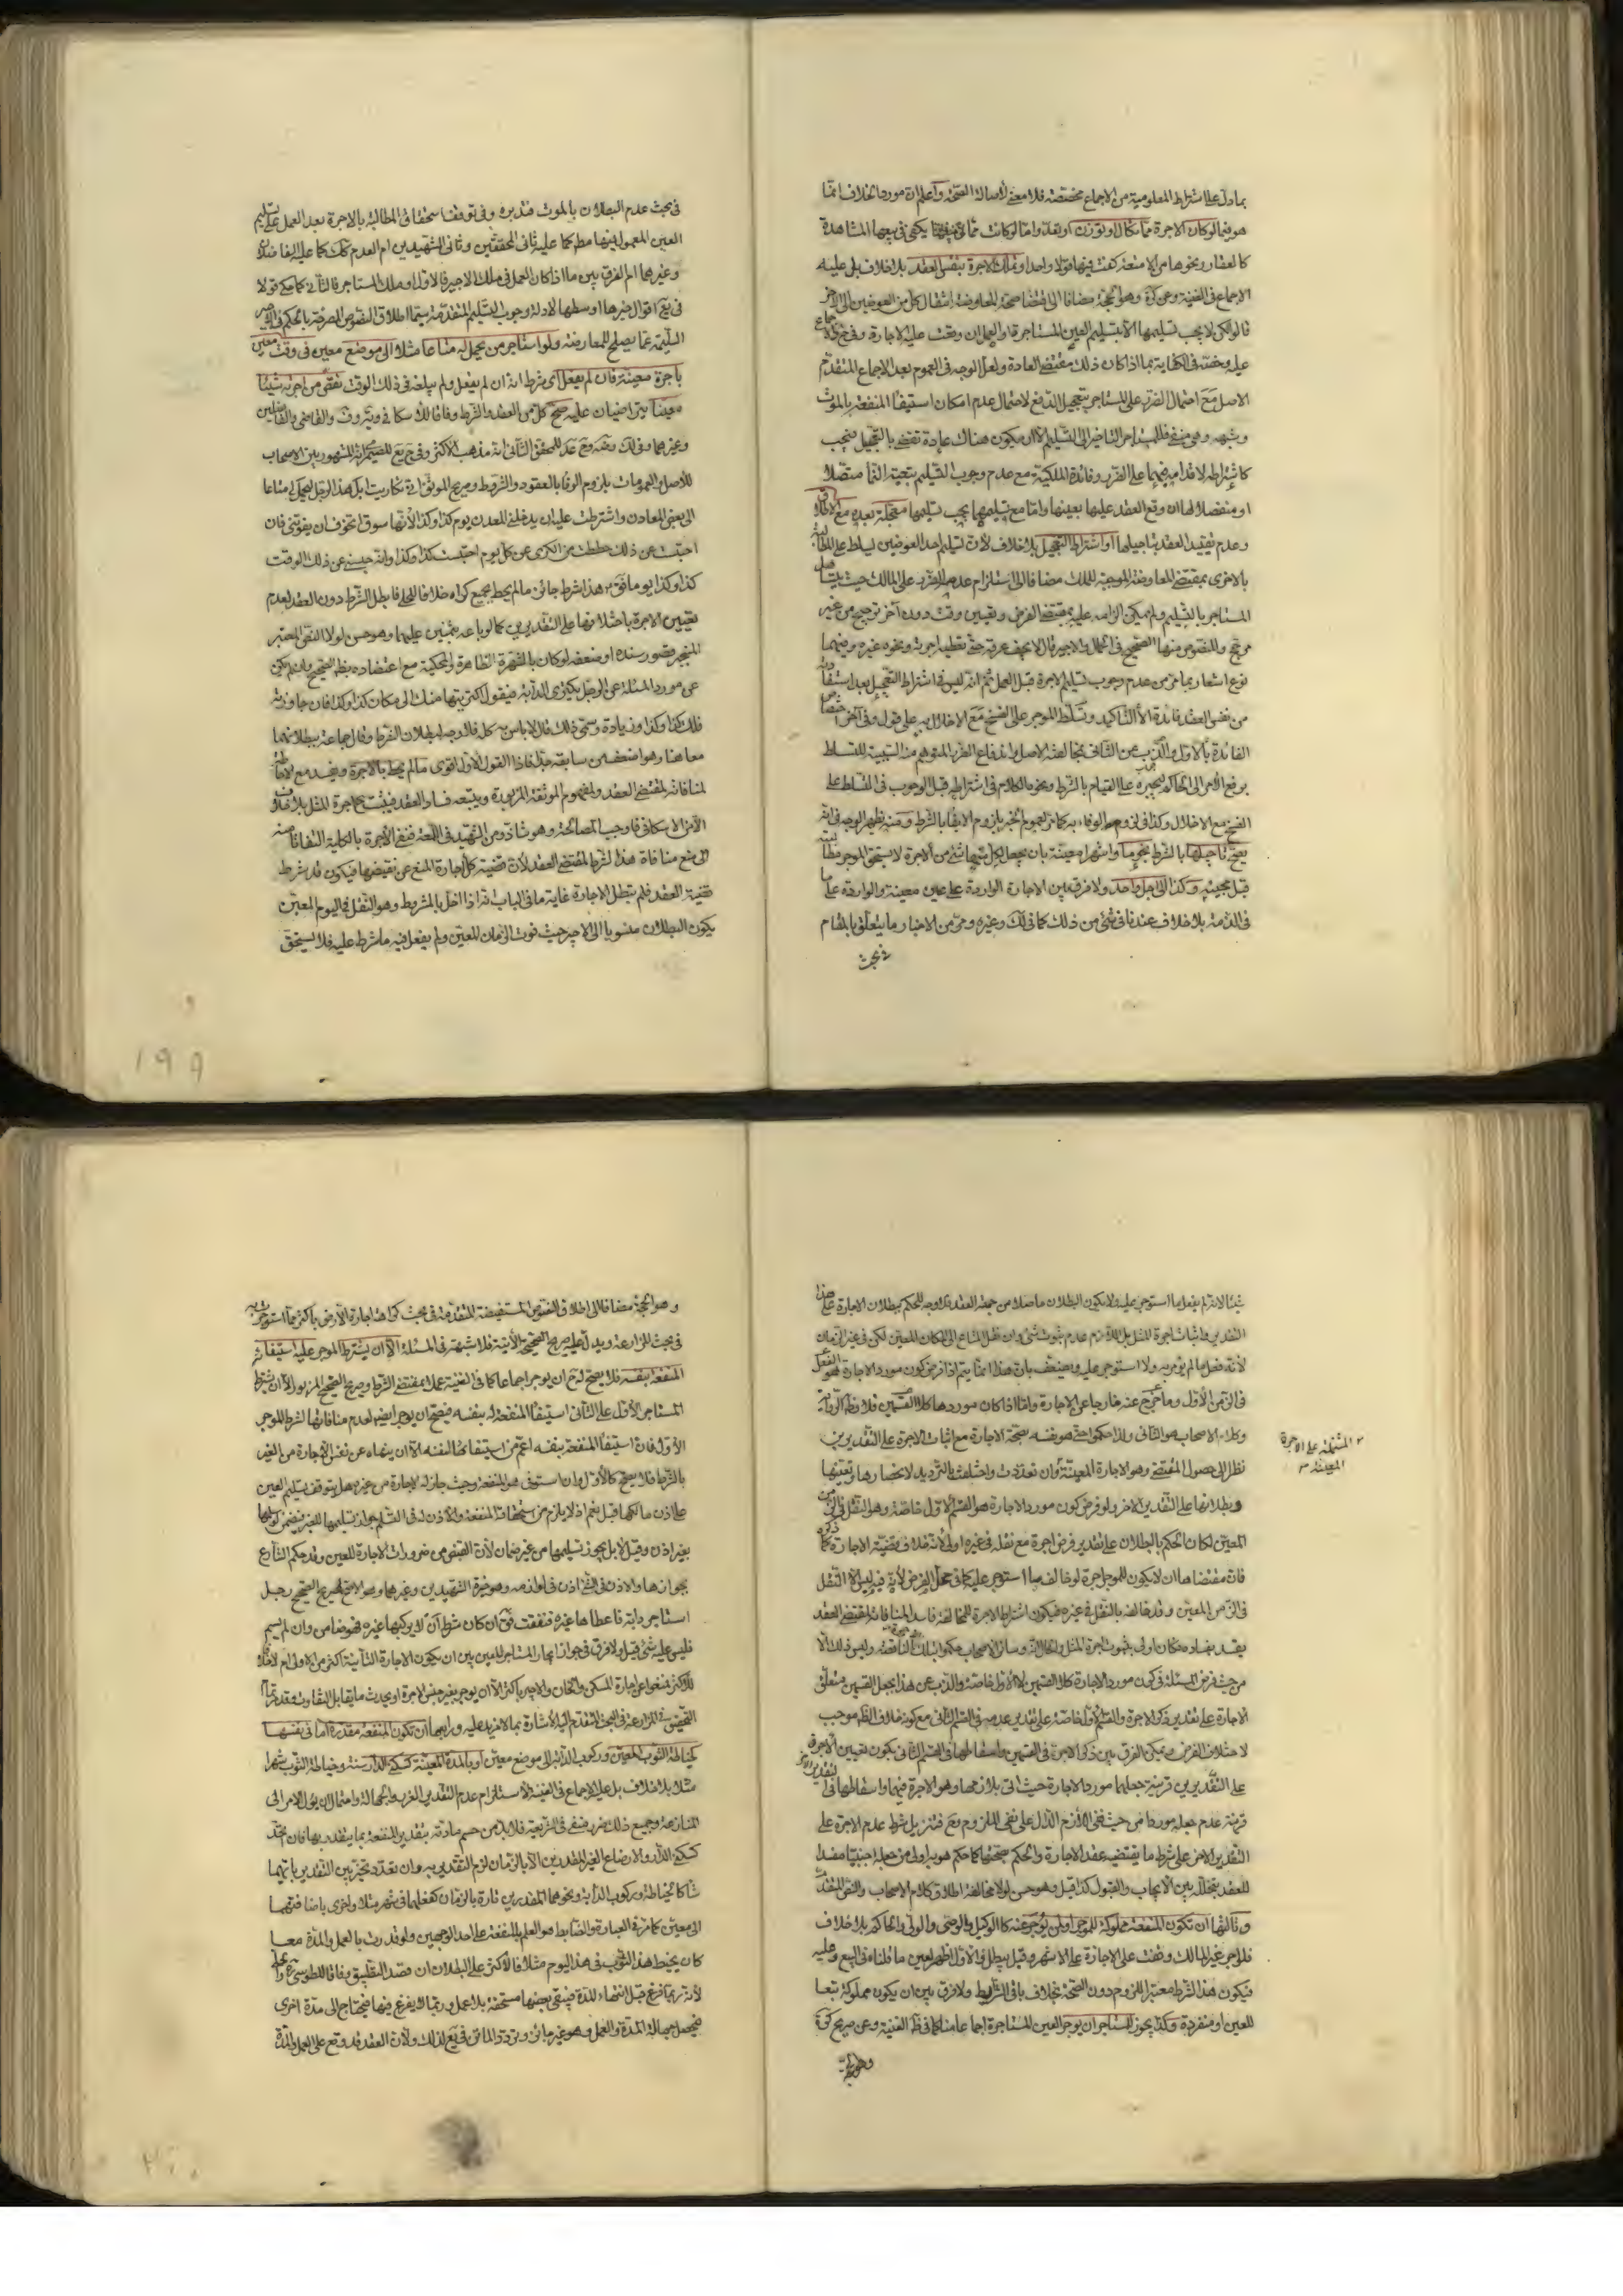 بما دل على اشتراط المعلومية من الاجماع مخصصة فلا معنى لاصالة الصحة واعلم ان مورد الخلاف انما
هو فيما لو كان الاجرة مما يكال او يوزن او يعد واما لو كانت مما يكفى فى بيعها المشاهدة
كالعقار ونحوها من الامتعة كفت فيها قولا واحدا وتملك الاجرة بنفس العقد بلا خلاف بل عليه
الاجماع فى الغنية وعن كرة وهو الحجة مضافا الى اقتضا صحة المعاوضة انتقال كل من العوضين الى الاخر
قالوا لكن لا يجب تسليمها الا بتسليم العين المستاجرة او العمل ان وقعت عليه الاجارة
فى الكفاية بما اذا كان ذلك مقتضى العادة ولعل الوجه فى العموم بعد الاجماع المتقدم
الاصل مع احتمال الضرر على المستاجر بتعجيل الدفع لاحتمال عدم امكان استيفا المنفعة بالموت
وشبهه وهو منفى التاخير الى التسليم الا ان يكون هناك عادة تقتضى بالتعجيل فيجب
كاشتراطه لاقدامه فيهما على الضرر وفائدة الملكية مع عدم وجوب التسليم بتعية النما متصلا
او منفصلا لها ان وقع العقد عليها بعينها واما مع تسليمهما يجب تسليمها معجلة بعده مع الاطلاق
وعدم تقييد العقد بتاجيلها او اشتراط التعجيل بلا خلاف لان تسليم احد العوضين يسلط على المطالبة
بالاخرى بمقتضى المعاوضة الموجبة للملك مضافا الى استلزام عدمه الضرر على المالك حيث
المستاجر بالتسليم ولم يمكن الزامه عليه بمقتضى الفرض وتعيين وقت دون آخر ترجيح من غير
مرجح وللنصوص منها الصحيح فى الحمال والاجير قال لا يجف عرقه حتى تعطيه اجرته ونحوه غيره وفيهما
نوع اشعار بما مر من عدم وجوب تسليم الاجرة قبل العمل ثم انه ليس فى اشتراط التعجيل بعد استفادته
من نفس العقد فائدة الا التاكيد وتسلط الموجر على الفسخ مع الاخلال به على قول وفى آخر اختصاص
الفائدة بالاول والذب عن الثانى بمخالفة الاصل واندفاع الضرر المتوهم منه السببية للتسلط
برفع الامر الى الحاكم ليجبره على القيام بالشرط ونحوه الكلام فى اشتراطه قبل الوجوب فى التسلط على
الفسخ مع الاخلال وكذا فى لزوم الوفاء به كما مر لعموم الخبر بلزوم الايفا بالشرط ومنه يظهر الوجه فى انه
يصح تاجيلها بالشرط نجوما واشهرا معينة بان يجعل لكل منها شئ من الاجرة لا يستحق الموجر مطالبته
قبل مجيئه وكذا الى اجل واحد ولا فرق بين الاجارة الواردة على عين معينة والواردة على ما
فى الذمة بلا خلاف عندنا فى شئ من ذلك كما فى لك وغيره ومر من الاخبار ما يتعلق بالمقام
فى بحث
فى بحث عدم البطلان بالموت فتدبره وفى توقف استحقا فى المطالبة بالاجرة بعد العمل على تسليم
العين المعمول فيها مطلقا كما عليه ثانى المحققين وثانى الشهيدين ام العدم كك كما عليه الفاضلان
وغيرهما ام الفرق بين ما اذا كان العمل فى ملك الاجير فالاول او ملك المستاجر فالثانى كما حكى قولا
فى يع اقوال خيرها اوسطها لادلة وجوب التسليم المتقدمة سيما اطلاق النصوص المصرحة بالحكم فى الاجير
السليمة عما يصلح للمعارضة ولو استاجر من يحمل له متاعا مثلا الى موضع معين فى وقت معين
باجرة معينة فان لم يفعل اى شرط انه ان لم يفعل ولم يبلغه فى ذلك الوقت نقص من اجرته شيئا
معينا يتراضيان عليه صح كل من العقد والشرط وفاقا للاسكافى ويه وف والقاضى والفاضلين
وغيرهما وفى لك وضه وعد المحقق الثانى انه مذهب الاكثر وفى الصيمرى انه المشهور بين الاصحاب
للاصل والعمومات بلزوم الوفا بالعقود والشروط وصريح الموثق انى تكاريت ابل هذا الرجل ليحمل لى متاعا
الى بعض المعادن واشترطت عليه ان يدخلنى المعدن يوم كذا وكذا لانها سوق اتخوف ان يفوتنى فان
احتبست عن ذلك حططت من الكرى عن كل يوم احتبست كذا وكذا وانه حبسنى عن ذلك الوقت
كذا وكذا يوما فقال هذا شرط جائز ما لم يحط بجميع كراه خلافا للحلى فابطل الشرط دون العقد لعدم
تعيين الاجرة باختلافها على التقديرين كما لو باعه بثمنين عليهما وهو حسن لولا النص المعتبر
المنجبر قصور سنده او ضعفه لو كان بالشهرة الظاهرة والمحكية مع اعتضاده بظاهر الصحيح وان لم يكن
عن مورد المسئلة عن الرجل يكترى الدابة فيقول اكتريتها منك الى مكان كذا وكذا فان جاوزته
فلك كذا وكذا زيادة ويسمى ذلك قال لا باس به كله فالوجه لبطلان الشرط وقال جماعة ببطلانهما
معا هنا وهو اضعف من سابقه جدا فاذا القول الاول اقوى ما لم يحط بالاجرة ويفسد مع الاحاطة
لمنافاته لمقتضى العقد ولمفهوم الموثقة المزبورة ويتبعه فساد العقد فيثبت ح اجرة المثل بلا خلاف
الا من الاسكافى فاوجب المصالحة وهو شاذ ومن الشهيد فى اللمعة فنفى الاجرة بالكلية التفاتا منه
الى منع منافاة هذا الشرط لمقتضى العقد لان قضية كل اجارة المنع عن نقيضها فيكون قد شرط
قضية العقد فلم تبطل الاجارة غاية ما فى الباب انه اذا اخل بالمشروط وهو النقل فى اليوم المعين
يكون البطلان منسوبا الى الاجير حيث فوت الزمان المعين ولم يفعل فيه ما شرط عليه فلا يستحق
١٩٩
شيئا لانه لم يفعل ما استوجر عليه ولا يكون البطلان حاصلا من جهة العقد فلا وجه للحكم ببطلان الاجارة على هذا
التقدير واثبات اجرة المثل بل اللازم عدم ثبوت شئ وان نقل المتاع الى المكان المعين لكن فى غير الزمان
لانه فعل ما لم يؤمر به ولا استوجر عليه ويضعف بان هذا انما يتم اذا فرض كون مورد الاجارة هو الفعل
فى الزمن الاول وما خرج عنه خارجا عن الاجارة واما اذا كان موردها كلا القسمين فلا وظاهر الرواية
وكلام الاصحاب هو الثانى ولذا حكموا حتى هو نفسه بصحة الاجارة مع اثبات الاجرة على التقديرين
نظرا الى حصول المقتضى وهو الاجارة المعينة وان تعددت واختلفت بالترديد لانحصارها وتعينها
المشتملة على الاجرة
المعينة
وبطلانها على التقدير الاخر ولو فرض كون مورد الاجارة هو القسم الاول خاصة وهو النقل فى الزمن
المعين لكان الحكم بالبطلان على تقدير فرض اجرة مع نقله فى غيره اولى لانه خلاف قضية الاجارة كما ذكره
فان مقتضاها ان لا يكون للموجر اجرة لو خالف ما استوجر عليه كما فى محل الفرض لانه فيه ليس الا النقل
فى الزمن المعين وقد خالفه بالنقل فى غيره فيكون اشتراط الاجرة للمخالفة فاسدا لمنافاته لمقتضى العقد
يفسد بفساده فكان اولى بثبوت اجرة المثل والحال انه وسائر الاصحاب حكموا بتلك وليس ذلك الا
من حيث فرض المسئلة فى كون مورد الاجارة كلا القسمين لا الاول خاصة والذب عن هذا بجعل القسمين متعلق
الاجارة على تقدير ذكر الاجرة والقسم الاول خاصة على تقدير عدمه فى القسم الثانى مع كونه خلاف الظاهر موجب
لاختلاف الفرض ويمكن الفرق بين ذكر الاجرة فى القسمين واسقاطها فى القسم الثانى بكون تعيين الاجرة
على التقديرين قرينة جعلهما مورد الاجارة حيث اتى بلازمها وهو الاجرة فيهما واسقاطها فى التقدير الاخر
قرينة عدم جعله موردا من حيث نفى اللازم الدال على نفى الملزوم وح فتنزيل شرط عدم الاجرة على
التقدير الاخر على شرط ما يقتضيه عقد الاجارة والحكم بصحتها كما حكم هو به اولى من جعله اجنبيا مفسدا
للعقد بتخلله بين الايجاب والقبول كذا قيل وهو حسن لولا مخالفة اطلاق كلام الاصحاب والنص المتقدمين
وثالثها ان تكون المنفعة مملوكة للموجر او لمن يوجر عنه كالوكيل والوصى والولى والحاكم بلا خلاف
فلو اجر غير المالك وقفت على الاجازة على الاشهر وقيل يبطل والاول اظهر لعين ما قلناه فى البيع وعليه
فيكون هذا الشرط معتبرا للزوم دون الصحة بخلاف باقى الشرايط ولا فرق بين ان يكون مملوكة تبعا
للعين او منفردة وكذا يجوز للمستاجر ان يوجر العين المستاجرة اجماعا منا كما فى ظاهر الغنية وعن صريح كرة
وهو الحجة
وهو الحجة مضافا الى اطلاق النصوص المستفيضة المتقدمة فى بحث كراهة اجارة الارض باكثر مما استوجرت به
فى بحث المزارعة ويدل عليه صريح الصحيح الاتية فلا شبهة فى المسئلة الا ان يشترط الموجر عليه استيفاء
المنفعة بنفسه فلا يصح له ح ان يوجر اجماعا كما فى الغنية عملا بمقتضى الشرط وصريح الصحيح المزبور الا ان يشترط
المستاجر الاول على الثانى استيفا المنفعة له بنفسه فيصح ان يوجر ايضا لعدم منافاتها لشرط الموجر
الاول فان استيفا المنفعة بنفسه اعم من استيفائها لنفسه الا ان ينهاه عن نفس الاجارة من الغير
بالشرط فلا يصح كالاول وان استوفى هو المنفعة وحيث جاز له الاجارة من غيره هل يتوقف تسليم العين
على اذن مالكها قيل نعم اذ لا يلزم من استحقاقه المنفعة والاذن له فى التسلم جواز تسليمها للغير فيضمن لو سلمها
بغير اذن وقيل لا بل يجوز تسليمها من غير ضمان لان القبض من ضرورات الاجارة للعين وقد حكم الشارع
بجوازها والاذن فى الشئ اذن فى لوازمه وهو خيرة الشهيدين وغيرهما وهو الاصح لصريح الصحيح رجل
استاجر دابة فاعطاها غيره فنفقت فقال ان كان شرط ان لا يركبها غيره فهو ضامن وان لم يسم
فليس عليه شئ قيل ولا فرق فى جواز ايجار المستاجر للعين بين ان يكون الاجارة الثانية اكثر من الاولى ام لا خلافا
للاكثر فمنعوا عن اجارة المسكن والخان والاجير باكثر الا ان يوجر بغير جنس الاجرة او يحدث ما يقابل التفاوت وقد مر تمام
التحقيق فى المزارعة فى البحث المتقدم اليه الاشارة بما لا مزيد عليه ورابعها ان تكون المنفعة مقدرة اما فى نفسها
كخياطة الثوب المعين وركوب الدابة الى موضع معين او بالمدة المعينة كسكنى الدار سنة وخياطة الثوب شهرا
مثلا بلا خلاف بل عليه الاجماع فى الغنية لاستلزام عدم التقدير الغرر والجهالة واحتمال ان يؤل الامر الى
المنازعة وجميع ذلك ضرر منفى فى الشريعة فلا بد من حسم مادته بتقدير المنفعة بما يتقدر بها فان اتحد
كسكنى الدار والارضاع الغير المقدرين الا بالزمان لزم التقدير به وان تعدد تخير بين التقدير بايهما
شا كالخياطة وركوب الدابة ونحوهما المقدرين تارة بالزمان كفعلهما فى شهر مثلا واخرى باضافتهما
الى معين كما مر فى العبارة والضابط هو العلم بالمنفعة على احد الوجهين ولو قدرت بالعمل والمدة معا
كان يخيط هذا الثوب فى هذا اليوم مثلا فالاكثر على البطلان ان قصد التطبيق وفاقا للطوسى
لانه ربما فرغ قبل انتهاء المدة فيبقى بعضها مستحقة بلا عمل وربما لا يفرغ فيها فيحتاج الى مدة اخرى
فيحصل جهالة المدة والعمل وهو غير جائز وتردد الماتن فى يع لذلك ولان العقد قد وقع على العمل والمدة
٢٠٠